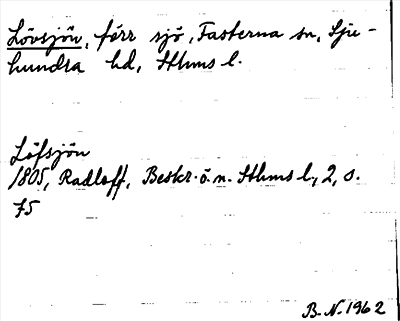 Lövsjön, förr sjö, Fasterna sn, Sju-
hundra hd, Sthms l.
Löfsjön
1805, Radloff, Beskr. ö. n. Sthms l., 2, s.
75
B. N. 1962